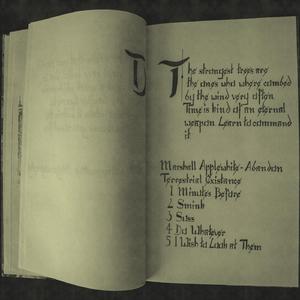 The strongest trees are
the ones who where combed
by the wind very often
Time is kind of an eternal
weapon Learn to command
it
Marshall Applewhite - Abandon
Terrestrial Existance
1 Minutes Before
2 Smink
3 Suss
4 Do Whatever
5 I Wish to Look at Them